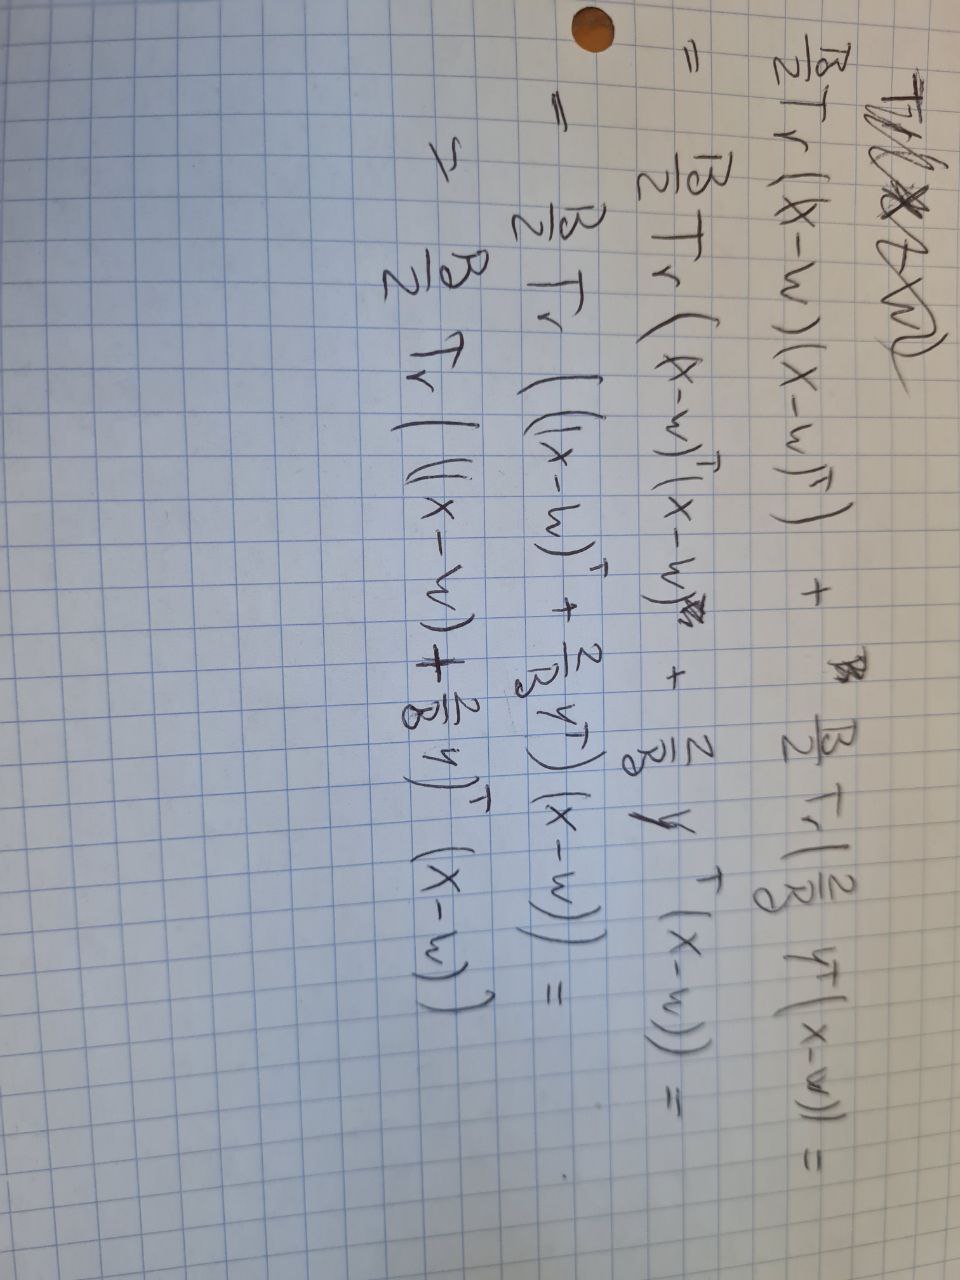 B/2 Tr((x-w)(x-w)ᵀ) + B/2 Tr(2/B yᵀ(x-w)) =
= B/2 Tr((x-w)ᵀ(x-w) + 2/B yᵀ(x-w)) =
= B/2 Tr(((x-w)ᵀ + 2/B yᵀ)(x-w)) =
= B/2 Tr(((x-w) + 2/B y)ᵀ(x-w))